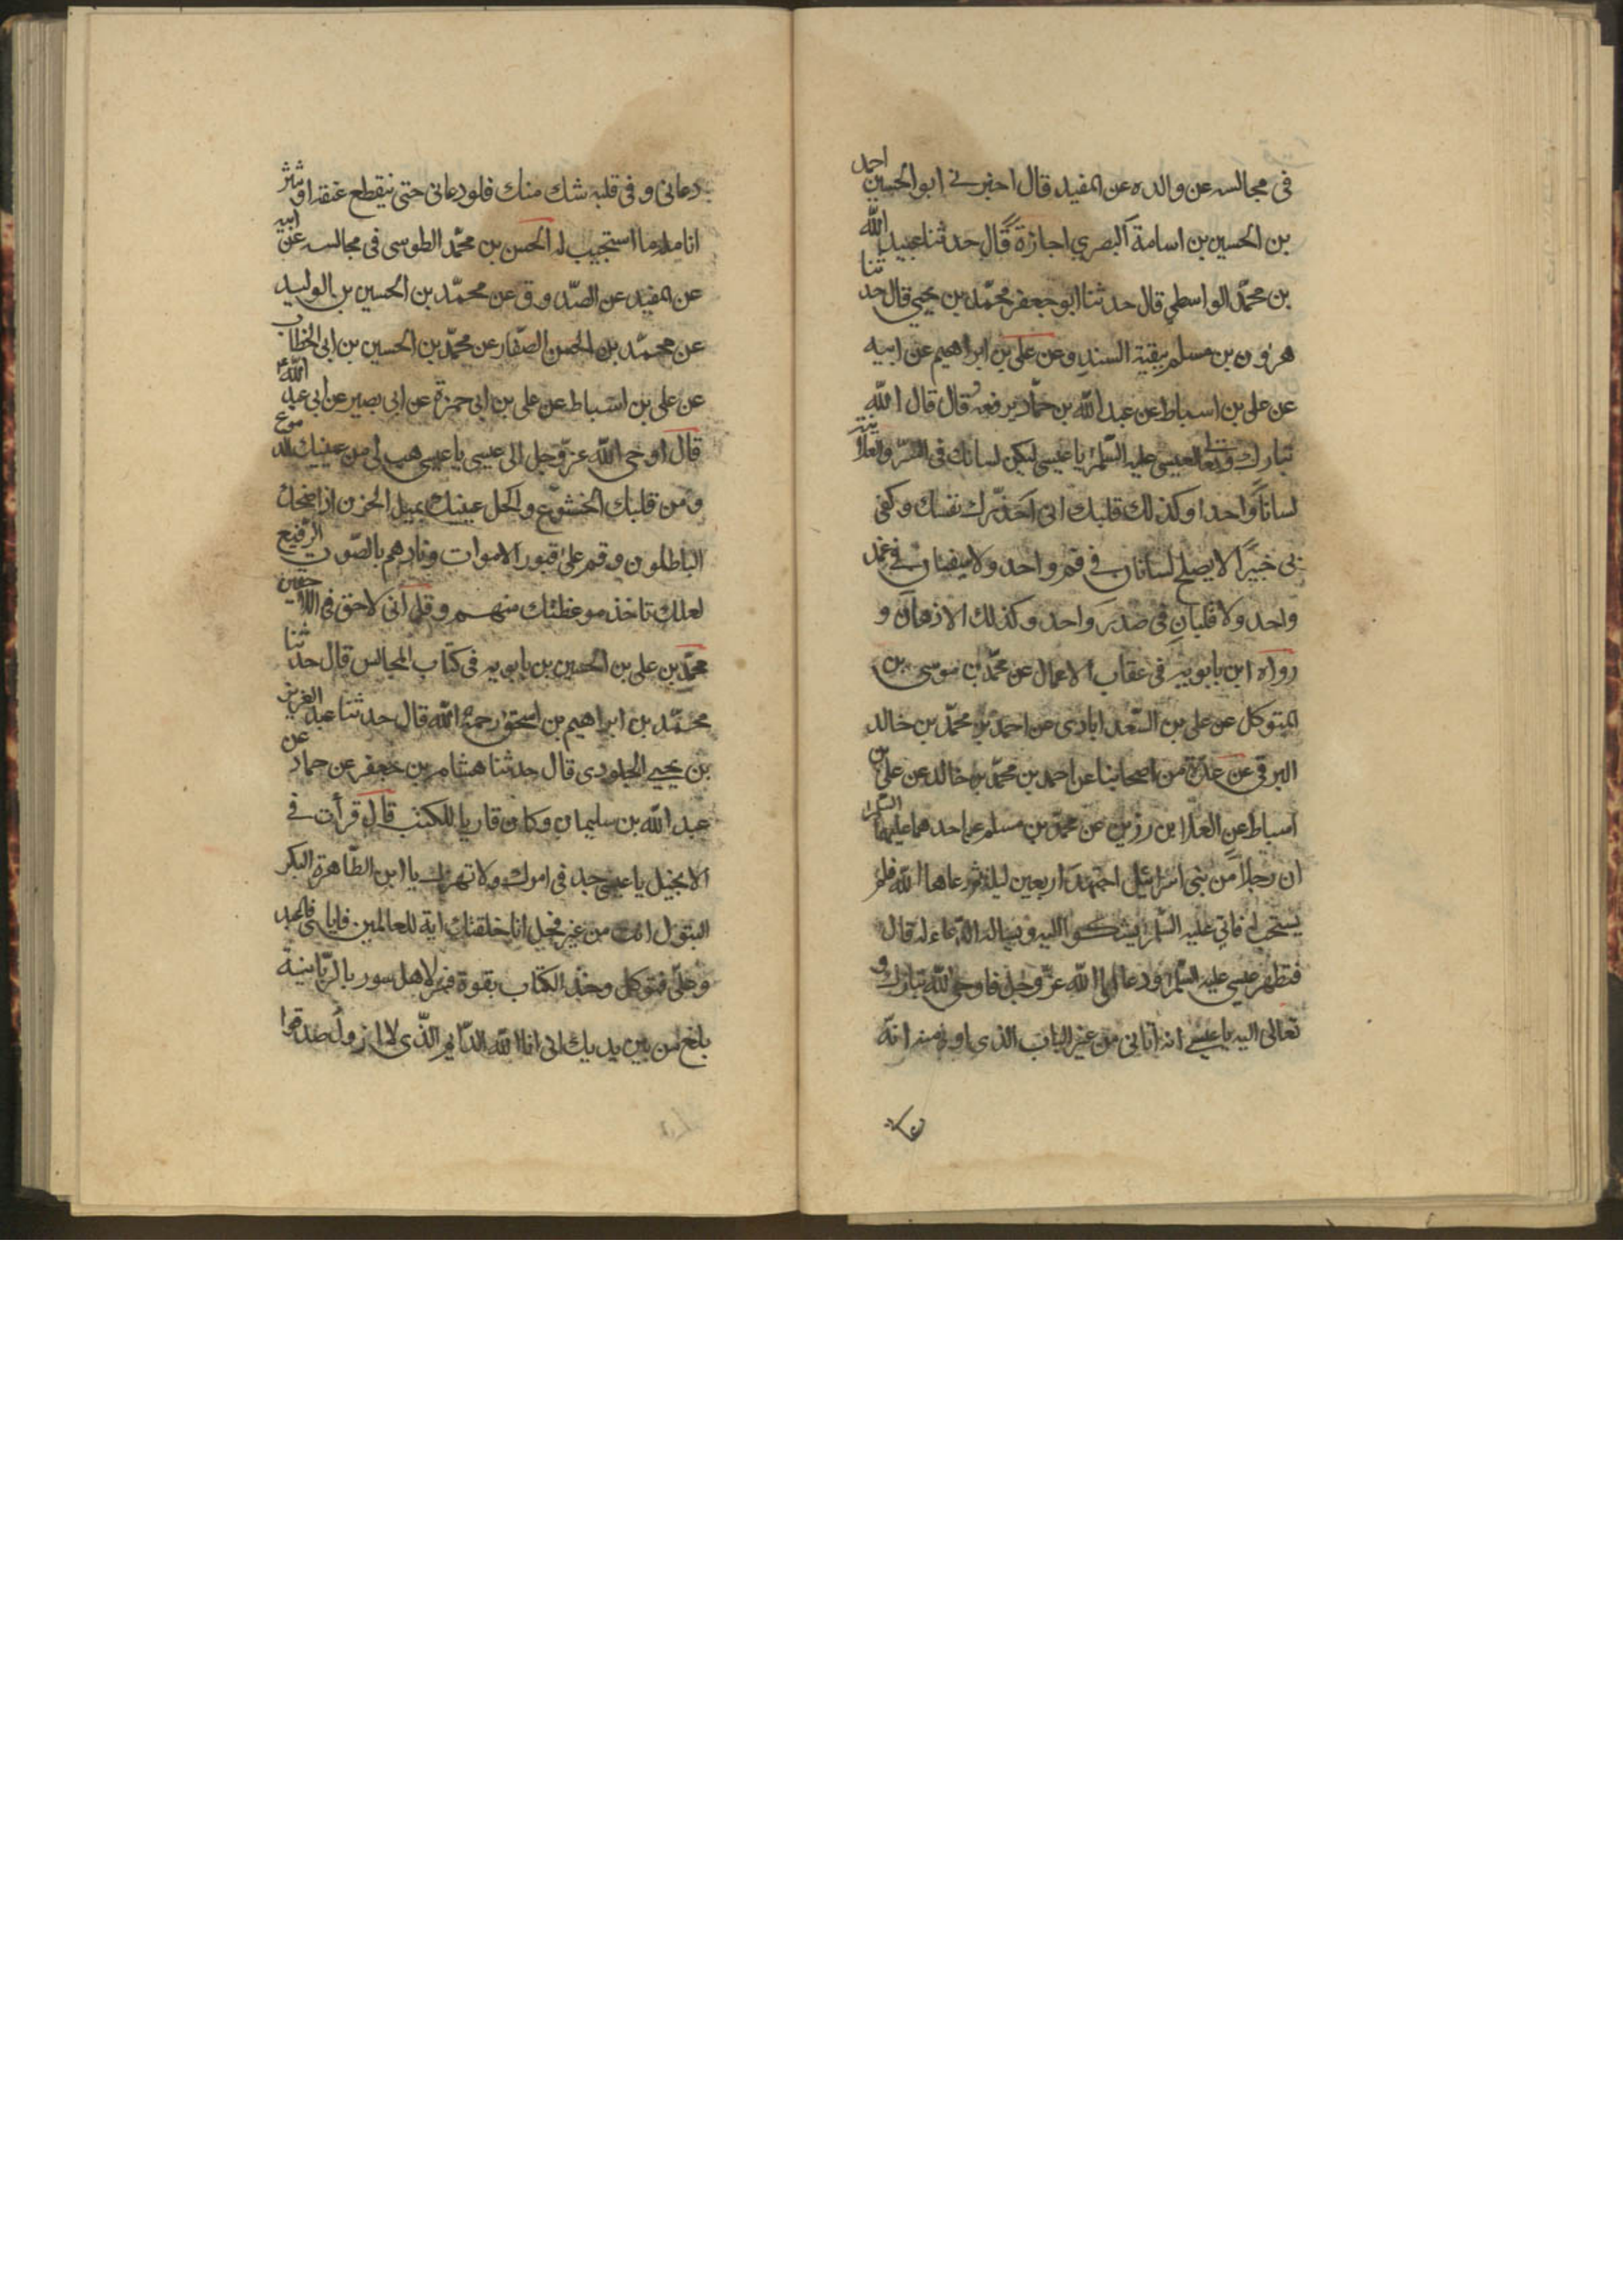 في مجالسه عن والده عن المفيد قال اخبرني ابو الحسين احمد
بن الحسين بن اسامة البصري اجازة قال حدثنا عبيد الله
بن محمد الواسطي قال حدثنا ابو جعفر محمد بن يحيى قال حدثنا
هرون بن مسلم ببقية السند وعن علي بن ابراهيم عن ابيه
عن علي بن اسباط عن عبد الله بن حماد يرفعه قال قال الله
تبارك وتعالى لعيسى عليه السلم يا عيسى ليكن لسانك في السر والعلانية
لسانا واحدا وكذلك قلبك اني احذرك نفسك وكفى
بي خبيرا لا يصلح لسانان في فم واحد ولا سيفان في غمد
واحد ولا قلبان في صدر واحد وكذلك الاذهان و
رواه ابن بابويه في عقاب الاعمال عن محمد بن موسى بن
المتوكل عن علي بن السعدابادي عن احمد بن محمد بن خالد
البرقي عن عدة من اصحابنا عن احمد بن محمد بن خالد عن علي بن
اسباط عن العلا بن رزين عن محمد بن مسلم عن احدهما عليهما السلم
ان رجلا من بني اسرائيل اجتهد اربعين ليلة ثم دعا الله فلم
يستجب له فاتى عليه السلم يشكو اليه ويساله الدعاء له قال
فتطهر عيسى عليه السلم ودعا الى الله عز وجل فاوحى الله تبارك و
تعالى اليه يا عيسى انه اتاني من غير الباب الذي اوتى منه انه
دعاني وفي قلبه شك منك فلو دعاني حتى ينقطع عنقه او تنثر
انامله ما استجيب له الحسن بن محمد الطوسي في مجالسه عن ابيه
عن المفيد عن الصدوق عن محمد بن الحسين بن الوليد
عن محمد بن الحسن الصفار عن محمد بن الحسين بن ابي الخطاب
عن علي بن اسباط عن علي بن ابي حمزة عن ابي بصير عن ابي عبد الله ع
قال اوحى الله عز وجل الى عيسى يا عيسى هب لي من عينيك الدموع
ومن قلبك الخشوع واكحل عينيك بميل الحزن اذا ضحك
الباطلون وقم على قبور الاموات ونادهم بالصوت الرفيع
لعلك تاخذ موعظتك منهم وقل اني لاحق في اللاحقين
محمد بن علي بن الحسين بن بابويه في كتاب المجالس قال حدثنا
محمد بن ابراهيم بن اسحق رحمه الله قال حدثنا عبد العزيز
بن يحيى الجلودي قال حدثنا هشام بن جعفر عن حماد عن
عبد الله بن سليمان وكان قاريا للكتب قال قرأت في
الانجيل يا عيسى جد في امرك ولا تهزل يا ابن الطاهرة البكر
البتول انت من غير فحل انا خلقتك اية للعالمين فاياي فاعبد
وعلي فتوكل وخذ الكتاب بقوة فسر لاهل سوريا بالسريانية
بلغ من بين يديك اني انا الله الدايم الذي لا ازول صدقوا